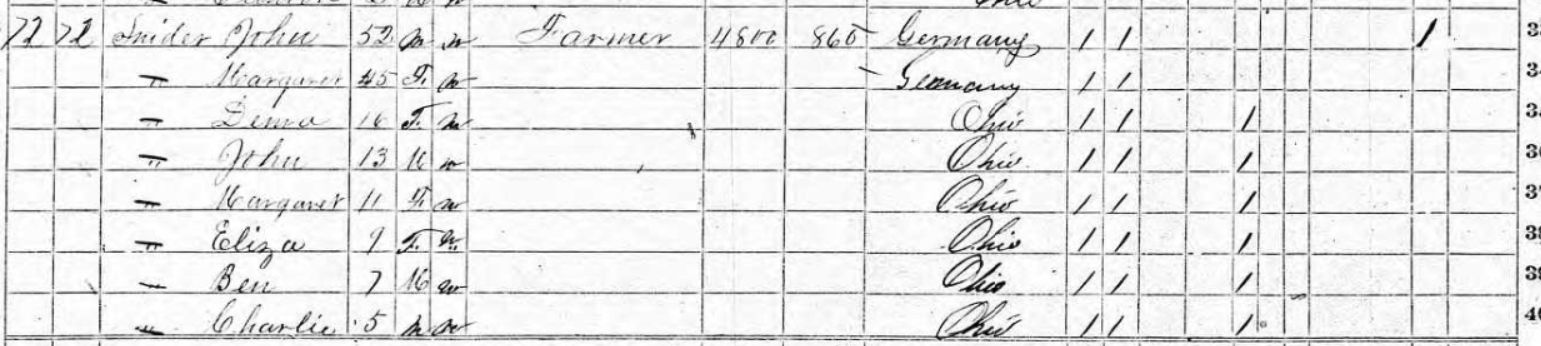 Ohio
72 72 Snider John 52 M W Farmer 4800 860 Germany 1 1 1 33
" Margaret 45 F W Germany 1 1 34
" 16 F W Ohio 1 1 1 35
" John 13 M W Ohio 1 1 1 36
" Margaret 11 F W Ohio 1 1 1 37
" Eliza 9 F W Ohio 1 1 1 38
" Ben 7 M W Ohio 1 1 1 39
" Charlie 5 M W Ohio 1 1 1 40